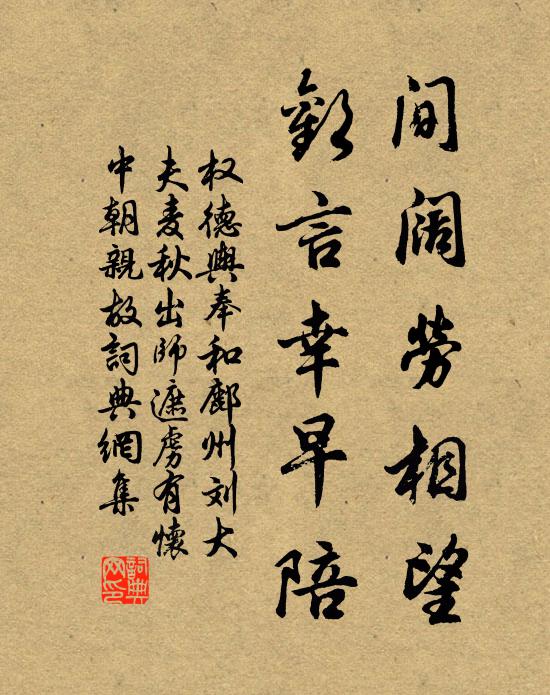 间阔劳相望
歡言幸早陪
权德輿奉和鄜州刘大
夫麦秋出师遮虏有懷
中朝親故詞典網集
詞典
网印